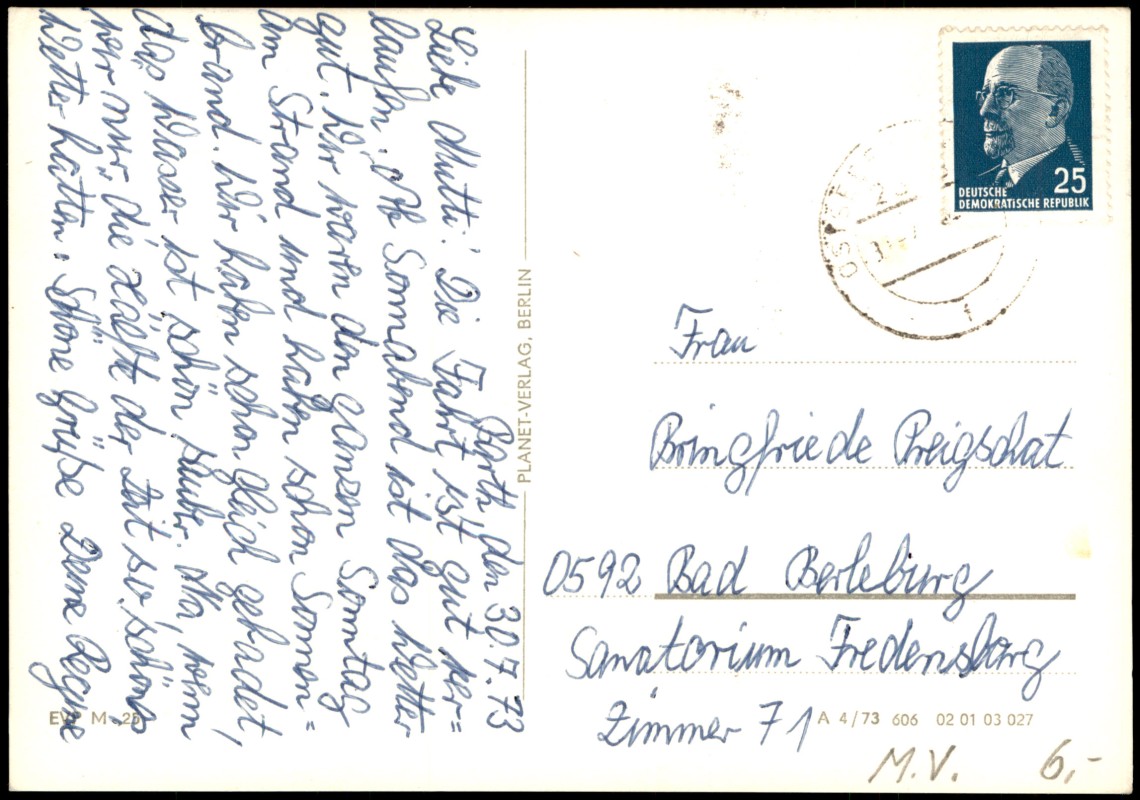 Barth den 30.7.73
Liebe Mutti! Die Fahrt ist gut ver=
laufen. Ab Sonnabend ist das Wetter
gut. Wir waren den ganzen Sonntag
am Strand und haben schon Sonnen=
brand. Wir haben schon gleich gebadet,
das Wasser ist schön sauber. Na, wenn
wir nur die Hälfte der Zeit so schönes
Wetter hätten. Schöne Grüße Deine
PLANET-VERLAG, BERLIN
EVP M -,25
DEUTSCHE
DEMOKRATISCHE REPUBLIK
25
OSTSEE
Frau
Bringfriede Preigschat
0592 Bad Berleburg
Sanatorium Fredensborg
Zimmer 71
A 4/73 606 02 01 03 027
M.V. 6,-